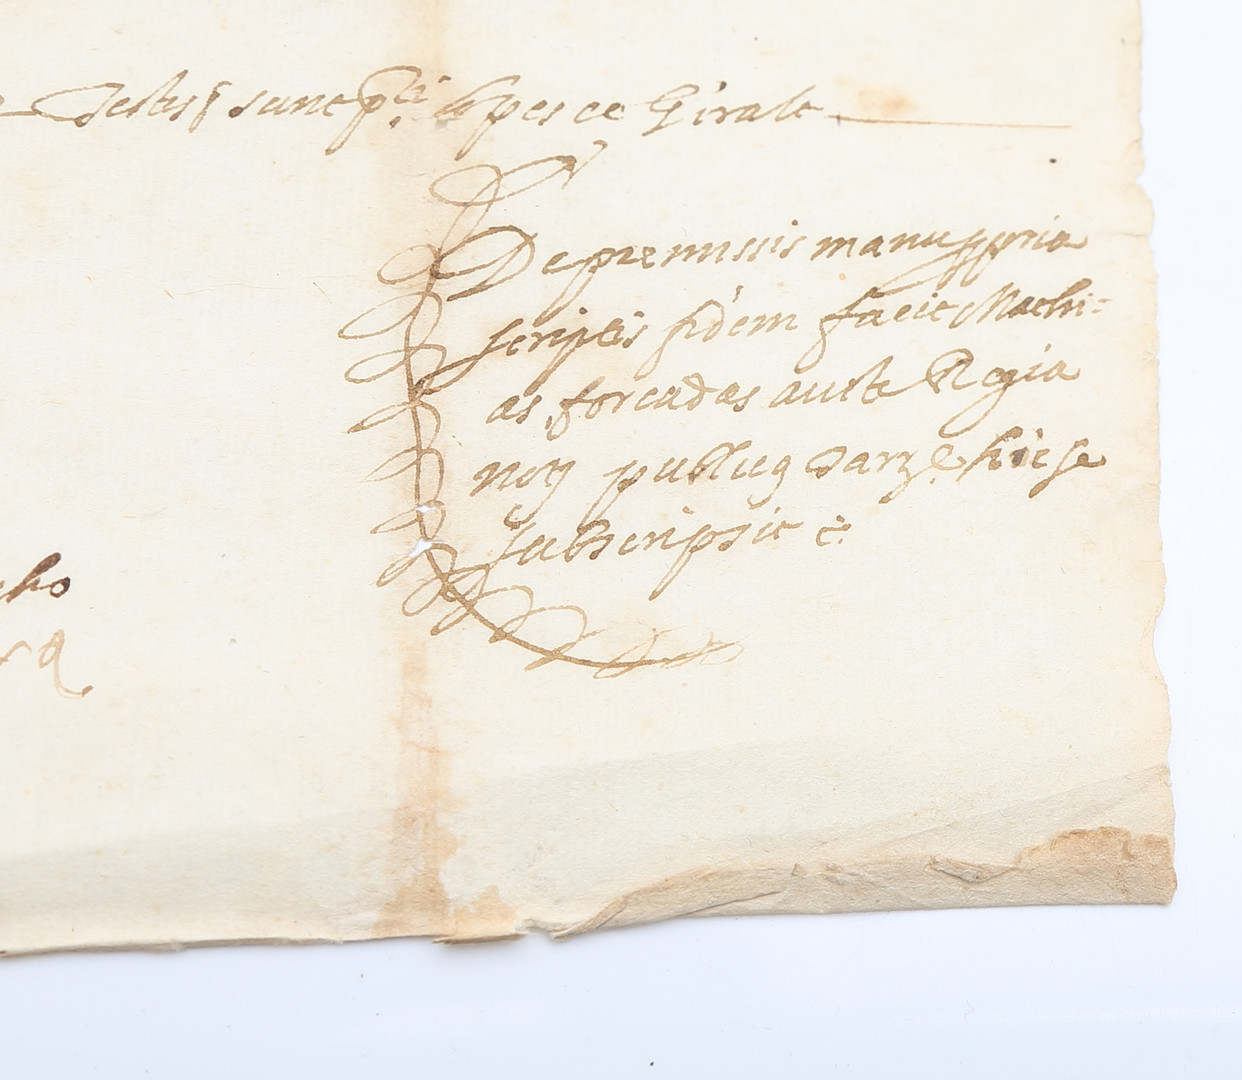 Testes sunt p.ti lopes et Giralt
De premissis manu ppria
scriptis fidem facit Mathi=
as forcadas aucte Regia
noty publicq Darz. e. hic se
subscripsit &.
cho